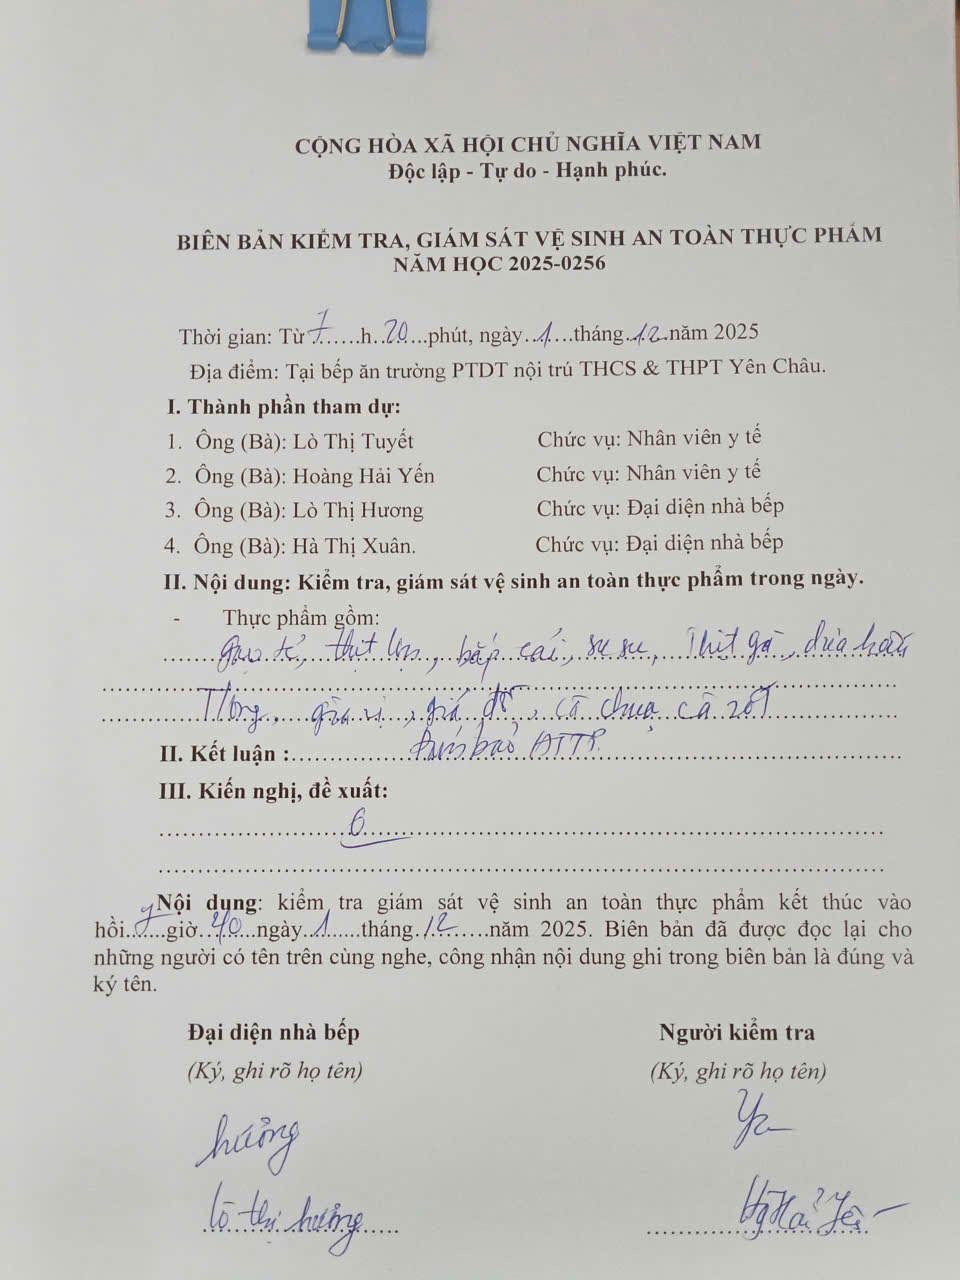 CỘNG HÒA XÃ HỘI CHỦ NGHĨA VIỆT NAM
Độc lập - Tự do - Hạnh phúc.
BIÊN BẢN KIỂM TRA, GIÁM SÁT VỆ SINH AN TOÀN THỰC PHẨM
NĂM HỌC 2025-0256
Thời gian: Từ 7......h..20...phút, ngày..1....tháng.12.năm 2025
Địa điểm: Tại bếp ăn trường PTDT nội trú THCS & THPT Yên Châu.
I. Thành phần tham dự:
1. Ông (Bà): Lò Thị Tuyết Chức vụ: Nhân viên y tế
2. Ông (Bà): Hoàng Hải Yến Chức vụ: Nhân viên y tế
3. Ông (Bà): Lò Thị Hương Chức vụ: Đại diện nhà bếp
4. Ông (Bà): Hà Thị Xuân. Chức vụ: Đại diện nhà bếp
II. Nội dung: Kiểm tra, giám sát vệ sinh an toàn thực phẩm trong ngày.
- Thực phẩm gồm:
thịt lợn, bắp cải, su su, Thịt gà, dưa hấu
gia vị, giá đỗ, cà chua, cà rốt
II. Kết luận :.......... Đảm bảo ATTP.
III. Kiến nghị, đề xuất:
Nội dung: kiểm tra giám sát vệ sinh an toàn thực phẩm kết thúc vào
hồi..7....giờ..40..ngày..1.....tháng.12.....năm 2025. Biên bản đã được đọc lại cho
những người có tên trên cùng nghe, công nhận nội dung ghi trong biên bản là đúng và
ký tên.
Đại diện nhà bếp Người kiểm tra
(Ký, ghi rõ họ tên) (Ký, ghi rõ họ tên)
hưởng
Lò thị hưởng Hg Hải Yến